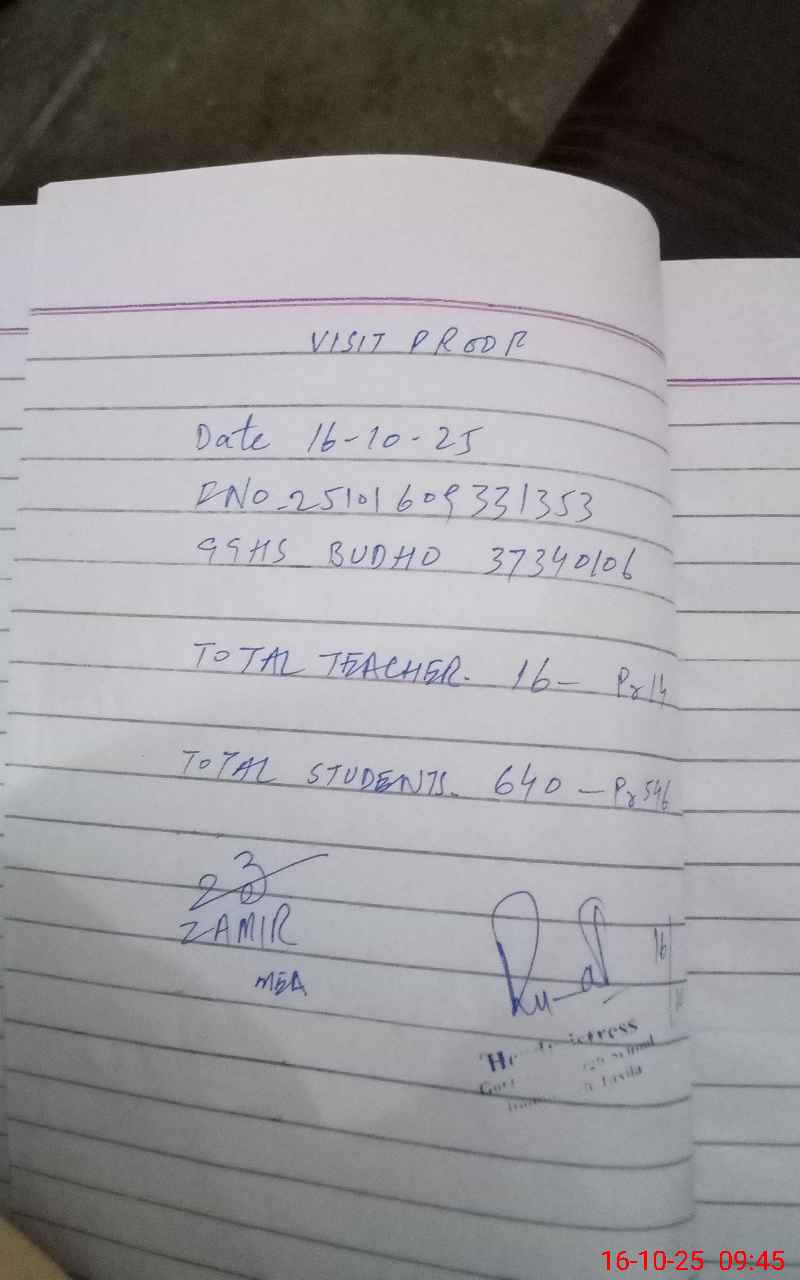 VISIT PROOF
Date 16-10-25
ENO-25101609331353
GGHS BUDHO 37340106
TOTAL TEACHER. 16- Pr 14
TOTAL STUDENTS. 640 - Pr 546
ZAMIR
MEA
16
16-10-25 09:45